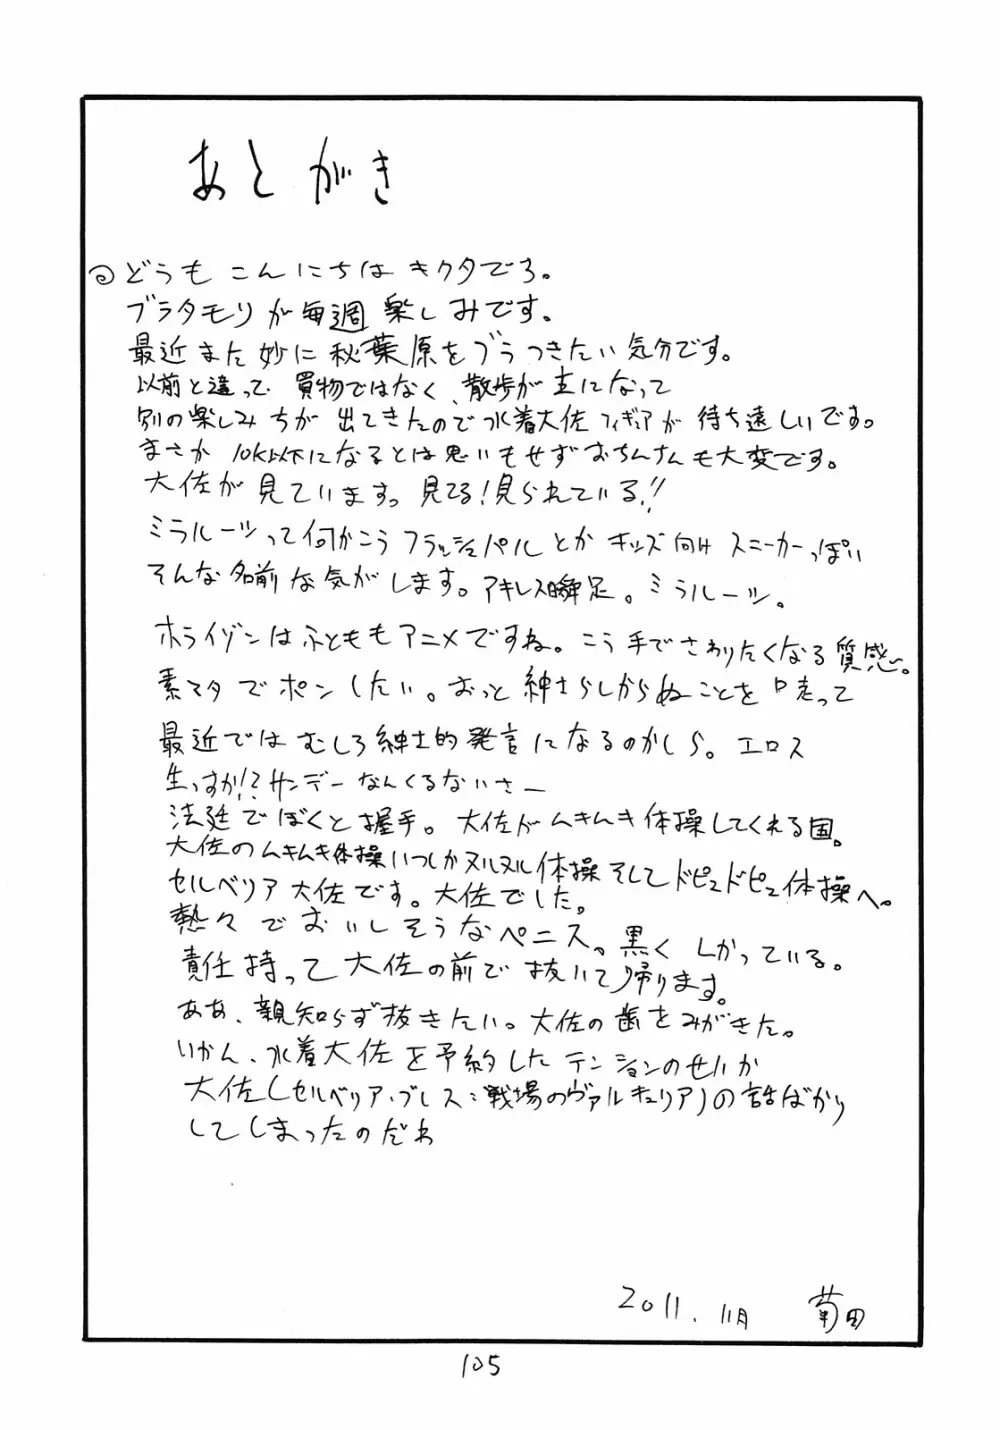 あとがき
どうも こんにちは キクタでろ。
ブラタモリが毎週 楽しみです。
最近また妙に秋葉原をブラつきたい気分です。
以前と違って 買物ではなく、散歩が主になって
別の楽しみ方が 出てきたので水着大佐フィギュアが 待ち遠しいです。
まさか 10K以下になるとは思いもせずおちんさんも大変です。
大佐が見ています。見てる!見られている!!
ミラルーツって何かこう フラッシュパルとか キッズ向け スニーカーっぽい
そんな名前な気がします。アキレス瞬足。ミラルーツ。
ホライゾンはふとももアニメですね。こう手でさわりたくなる質感。
素マタでポンしたい。おっと紳士らしからぬことを口走って
最近では むしろ紳士的発言になるのかしら。エロス
生っすか!?サンデーなんくるないさー
法廷でぼくと握手。大佐がムキムキ体操してくれる国。
大佐のムキムキ体操いつしかヌルヌル体操そしてドピュドピュ体操へ。
セルベリア大佐です。大佐でした。
熱々でおいしそうなペニス。黒く しかっている。
責任持って大佐の前で抜いて帰ります。
ああ、親知らず抜きたい。大佐の歯をみがきた。
いかん、水着大佐を予約したテンションのせいか
大佐(セルベリア・ブレス:戦場のヴァルキュリア)の話ばかり
してしまったのだわ
2011.11月 菊田
105